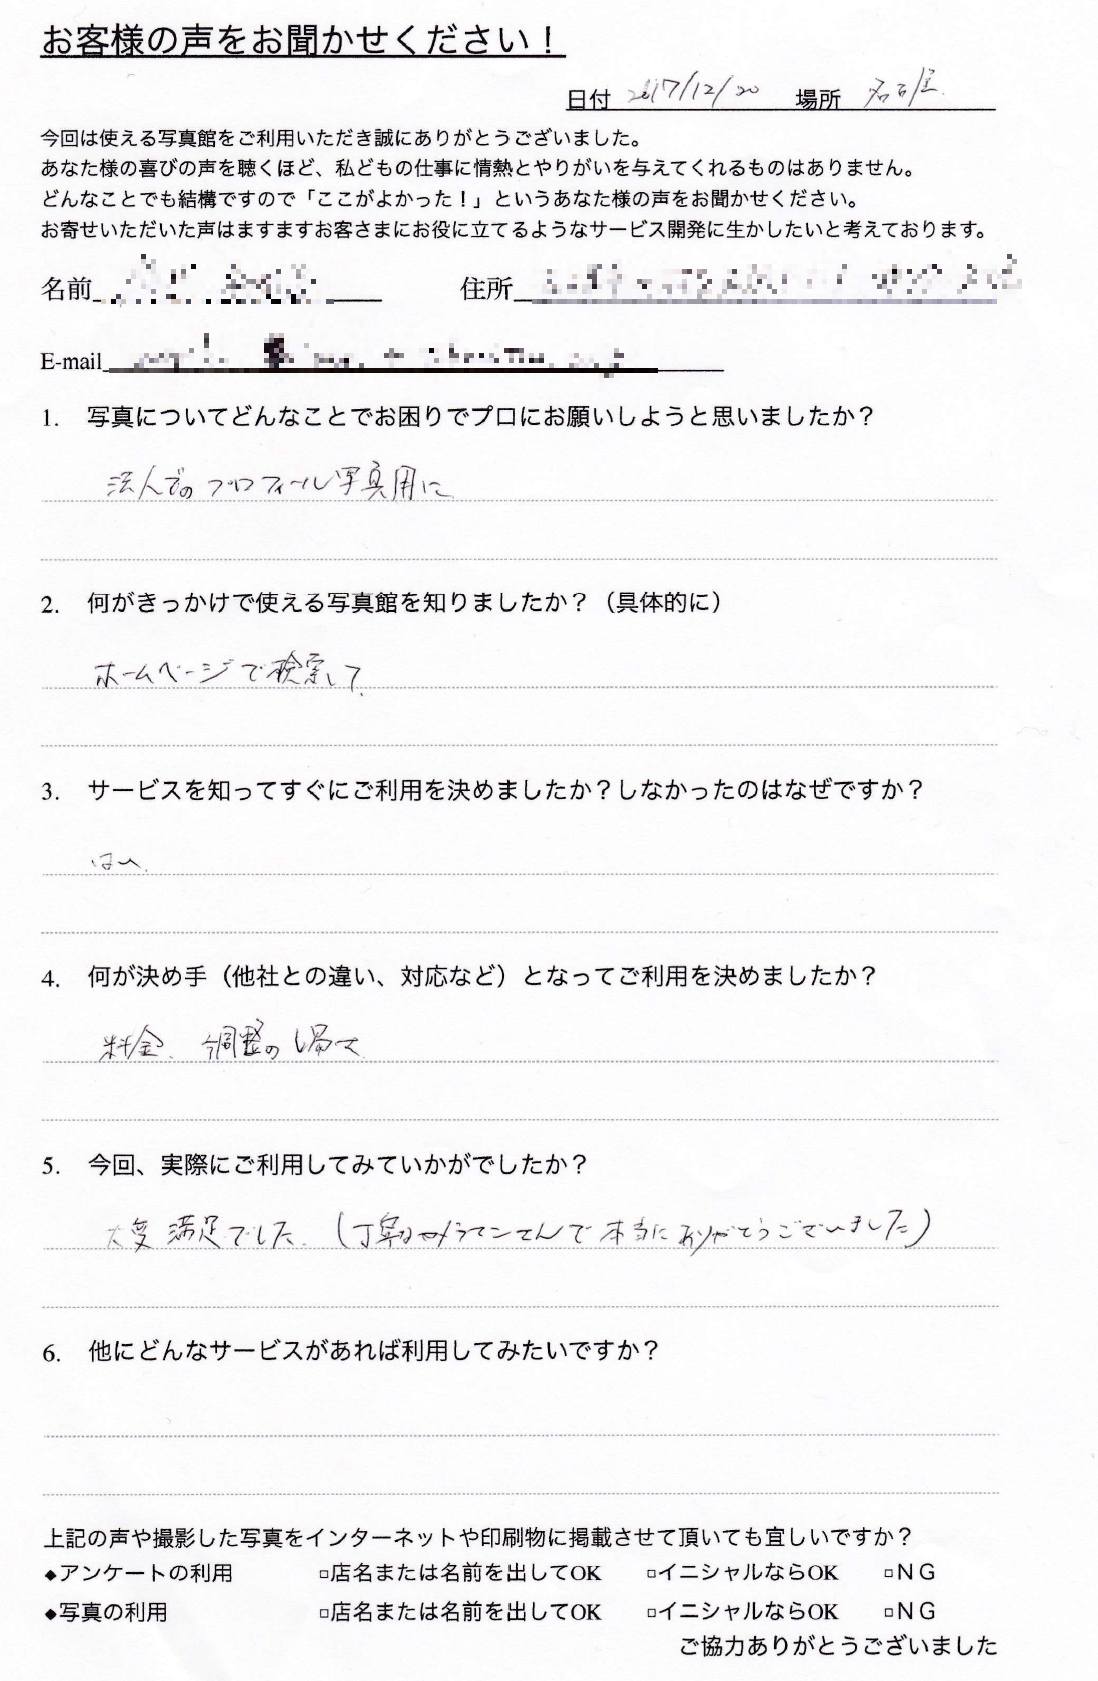 お客様の声をお聞かせください！
日付 2017/12/20 場所 名古屋
今回は使える写真館をご利用いただき誠にありがとうございました。
あなた様の喜びの声を聴くほど、私どもの仕事に情熱とやりがいを与えてくれるものはありません。
どんなことでも結構ですので「ここがよかった！」というあなた様の声をお聞かせください。
お寄せいただいた声はますますお客さまにお役に立てるようなサービス開発に生かしたいと考えております。
名前 住所
E-mail
1. 写真についてどんなことでお困りでプロにお願いしようと思いましたか？
法人でのプロフィール写真用に
2. 何がきっかけで使える写真館を知りましたか？（具体的に）
ホームページで検索して
3. サービスを知ってすぐにご利用を決めましたか？しなかったのはなぜですか？
はい
4. 何が決め手（他社との違い、対応など）となってご利用を決めましたか？
料金、調整のし易さ
5. 今回、実際にご利用してみていかがでしたか？
大変満足でした。（丁寧なカメラマンさんで本当にありがとうございました）
6. 他にどんなサービスがあれば利用してみたいですか？
上記の声や撮影した写真をインターネットや印刷物に掲載させて頂いても宜しいですか？
◆アンケートの利用 □店名または名前を出してOK □イニシャルならOK □ＮＧ
◆写真の利用 □店名または名前を出してOK □イニシャルならOK □ＮＧ
ご協力ありがとうございました